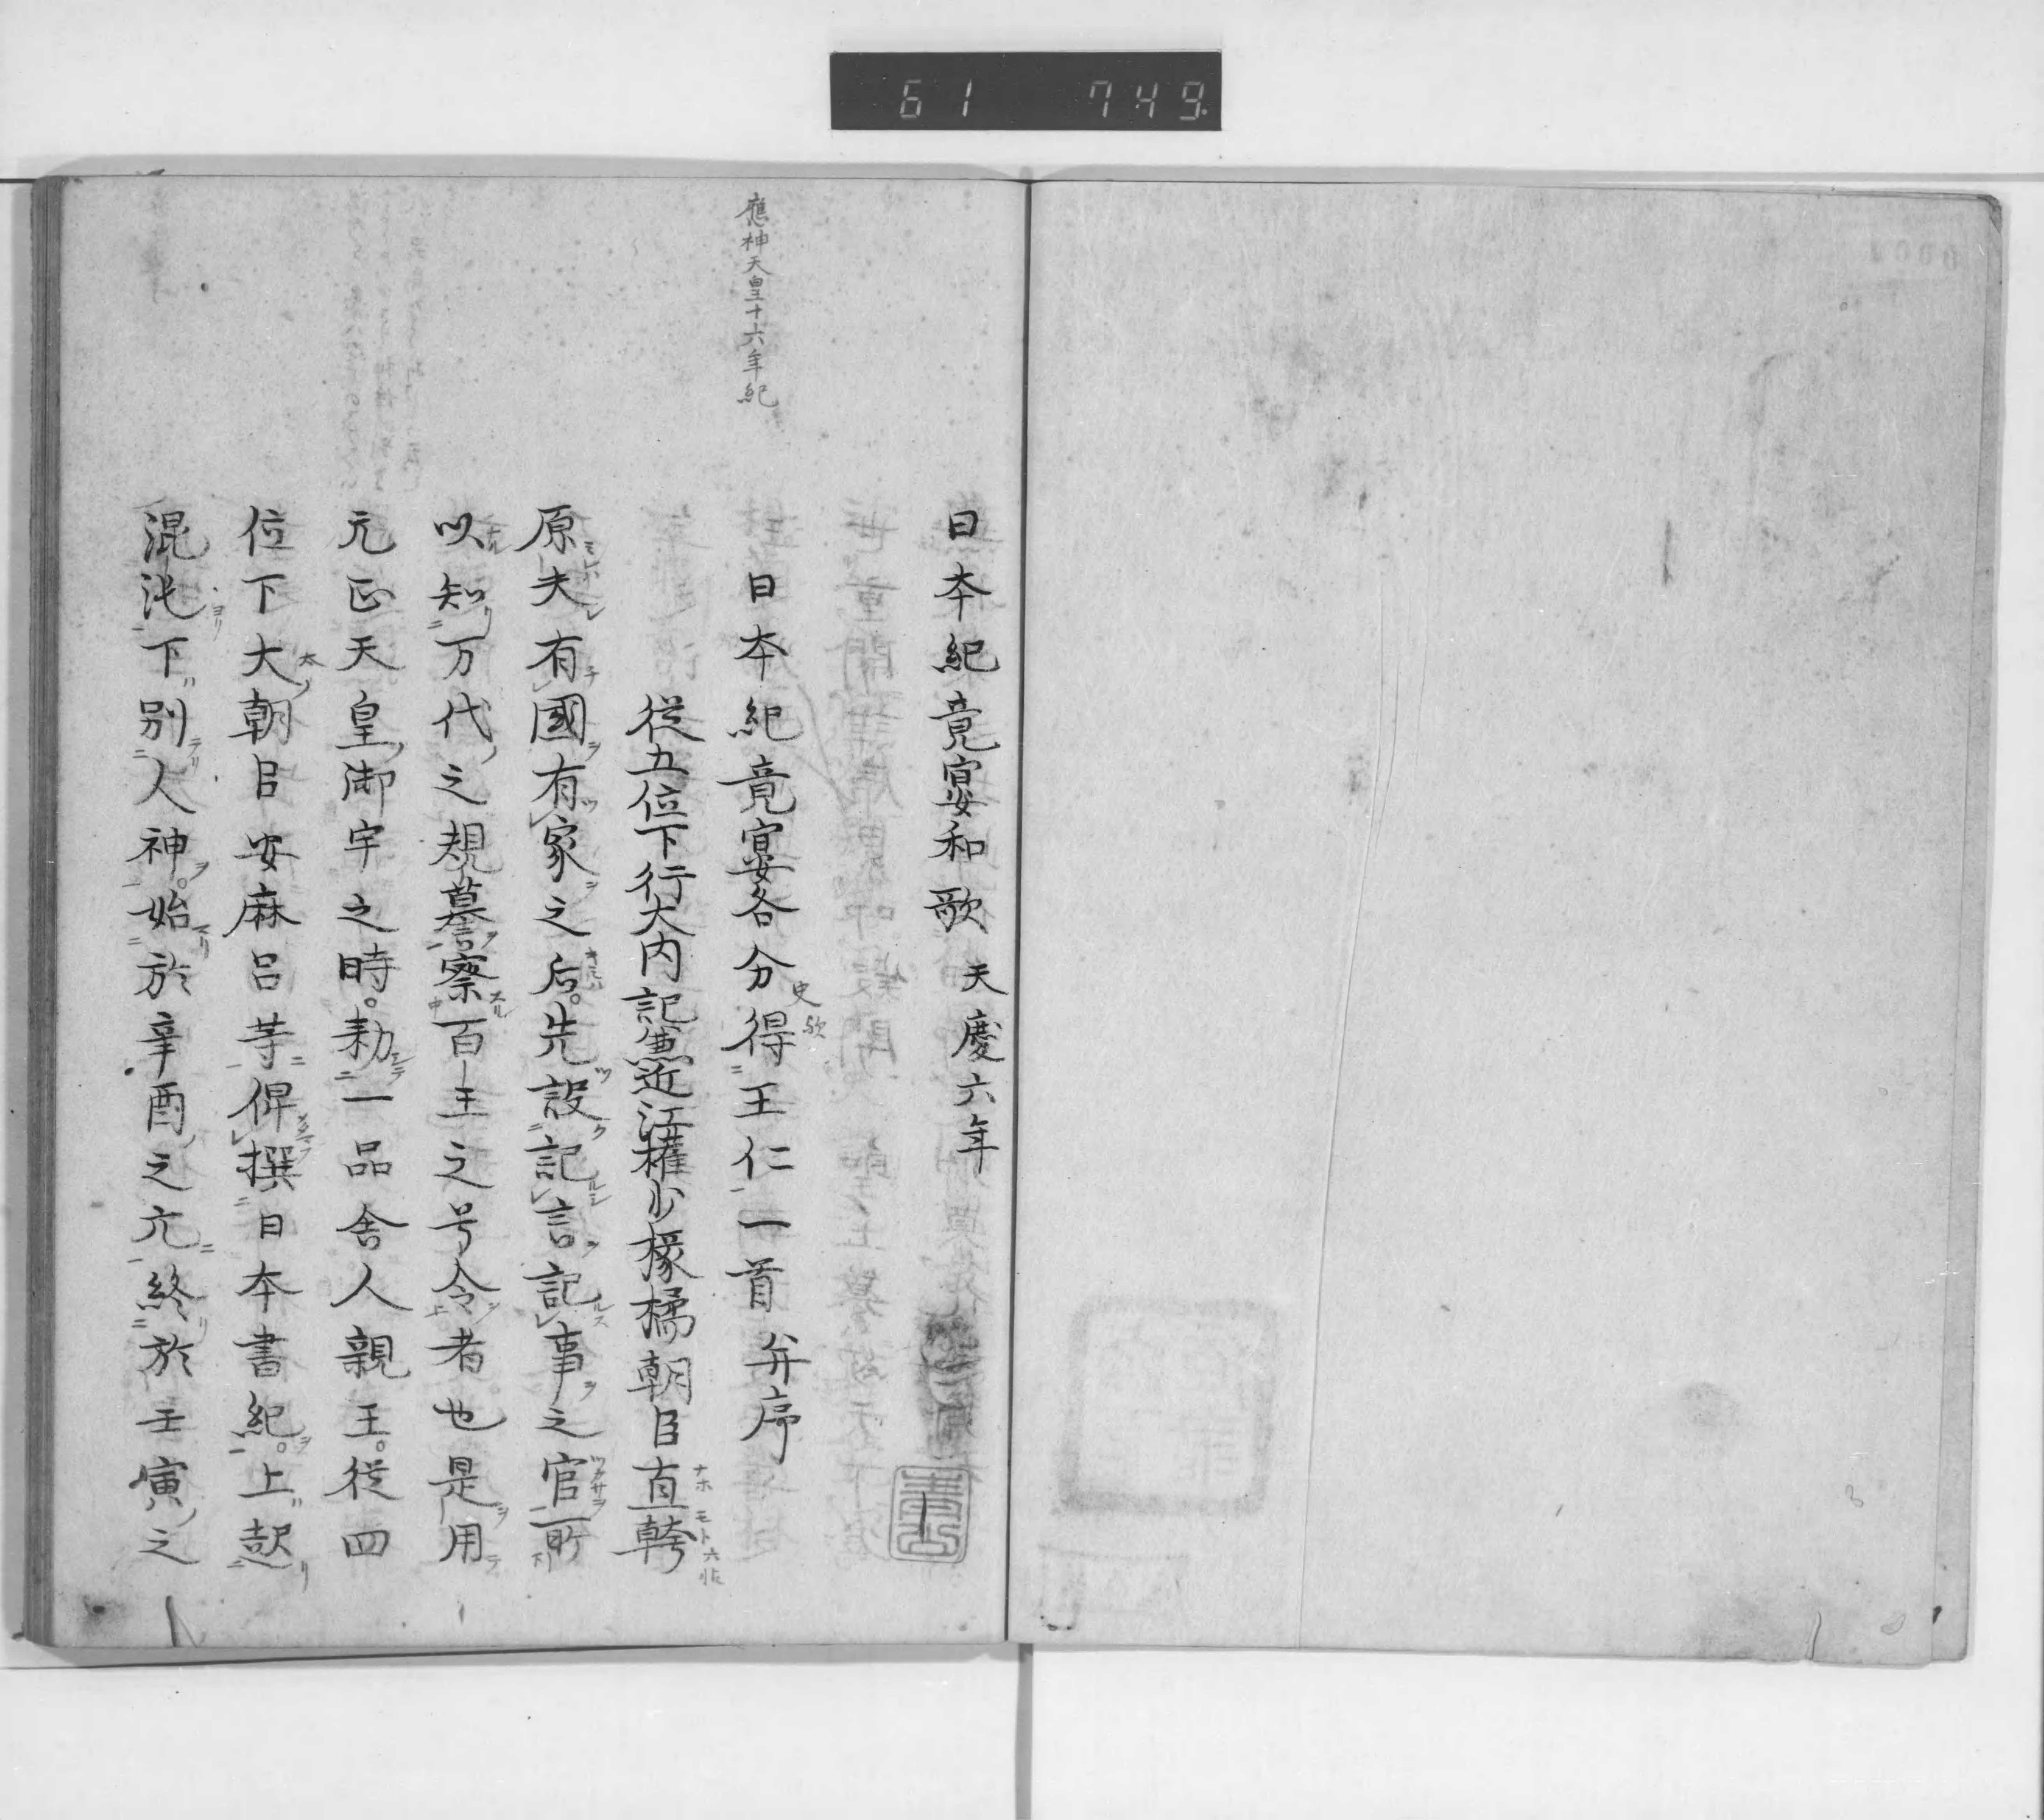 61 749
日本紀竟宴和歌 天慶六年
應神天皇十六年紀
日本紀竟宴各分得王仁一首 并序
史歟
従五位下行大内記兼近江權少掾橘朝臣直幹
ナホ モト 六帖
原夫有國有家之后。先設記言記事之官。所
以知万代之規摹察百王之号令者也是用
元正天皇御宇之時。勑一品舎人親王。従四
位下大朝臣安麻呂等俾撰日本書紀。上起
太
混沌下別人神。始於辛酉之元終於壬寅之